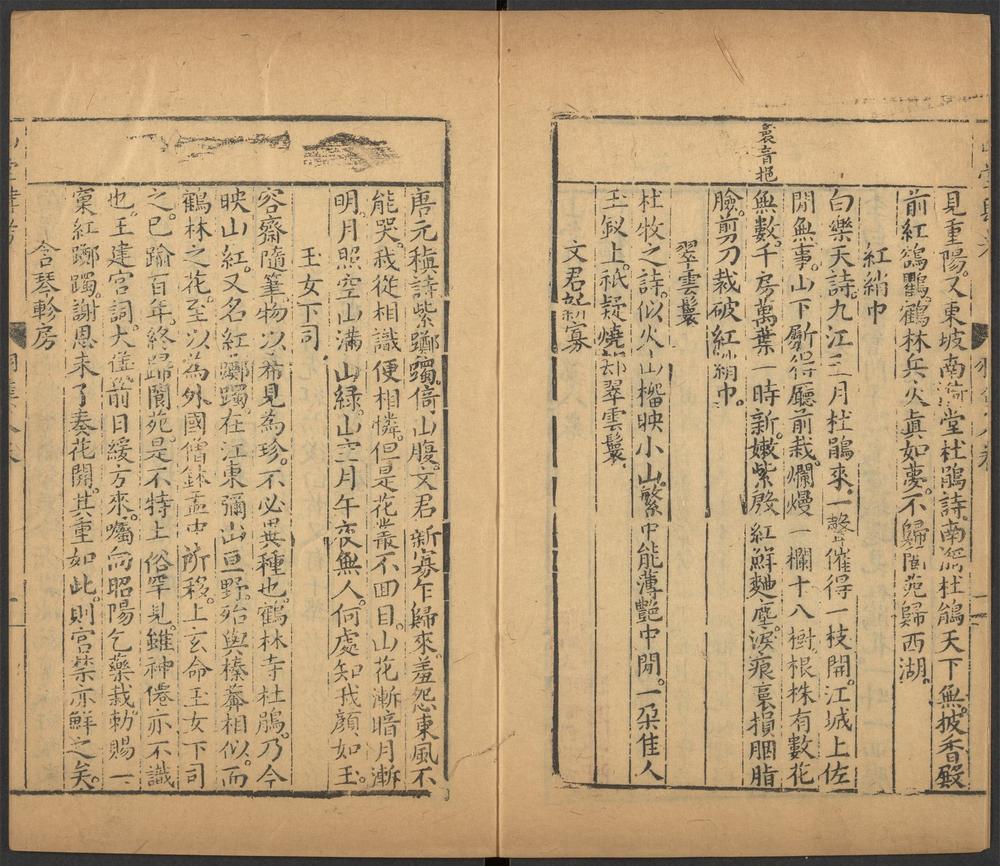 見重陽又東坡南漪堂杜鵑詩南漪杜鵑天下無披香殿
前紅𣰽毹鶴林兵火真如夢不歸閬苑歸西湖
紅綃巾
白樂天詩九江三月杜鵑來一聲催得一枝開江城上佐
閒無事山下斸得廳前栽爛熳一欄十八樹根株有數花
無數千房萬葉一時新嫩紫殷紅鮮麴塵淚痕裛損胭脂
臉剪刀裁破紅綃巾
裛音挹
翠雲鬟
杜牧之詩似火山榴映小山繁中能薄艷中閒一朵佳人
玉釵上祇疑燒却翠雲鬟
文君新寡
唐元稹詩紫躑躅倚山腹文君新寡乍歸來羞怨東風不
能哭我從相識便相憐但是花叢不回目山花漸暗月漸
明月照空山滿山綠山空月午夜無人何處知我顏如玉
玉女下司
容齋隨筆物以希見為珍不必異種也鶴林寺杜鵑乃今
映山紅又名紅躑躅在江東彌山亘野殆與榛莽相似而
鶴林之花至以為外國僧鉢盂中所移上玄命玉女下司
之已踰百年終歸閬苑是不特上俗罕見雖神僊亦不識
也王建宮詞大儀前日緩方來囑向昭陽乞藥栽勑賜一
窠紅躑躅謝恩未了奏花開其重如此則宮禁亦鮮之矣
含琴軫房